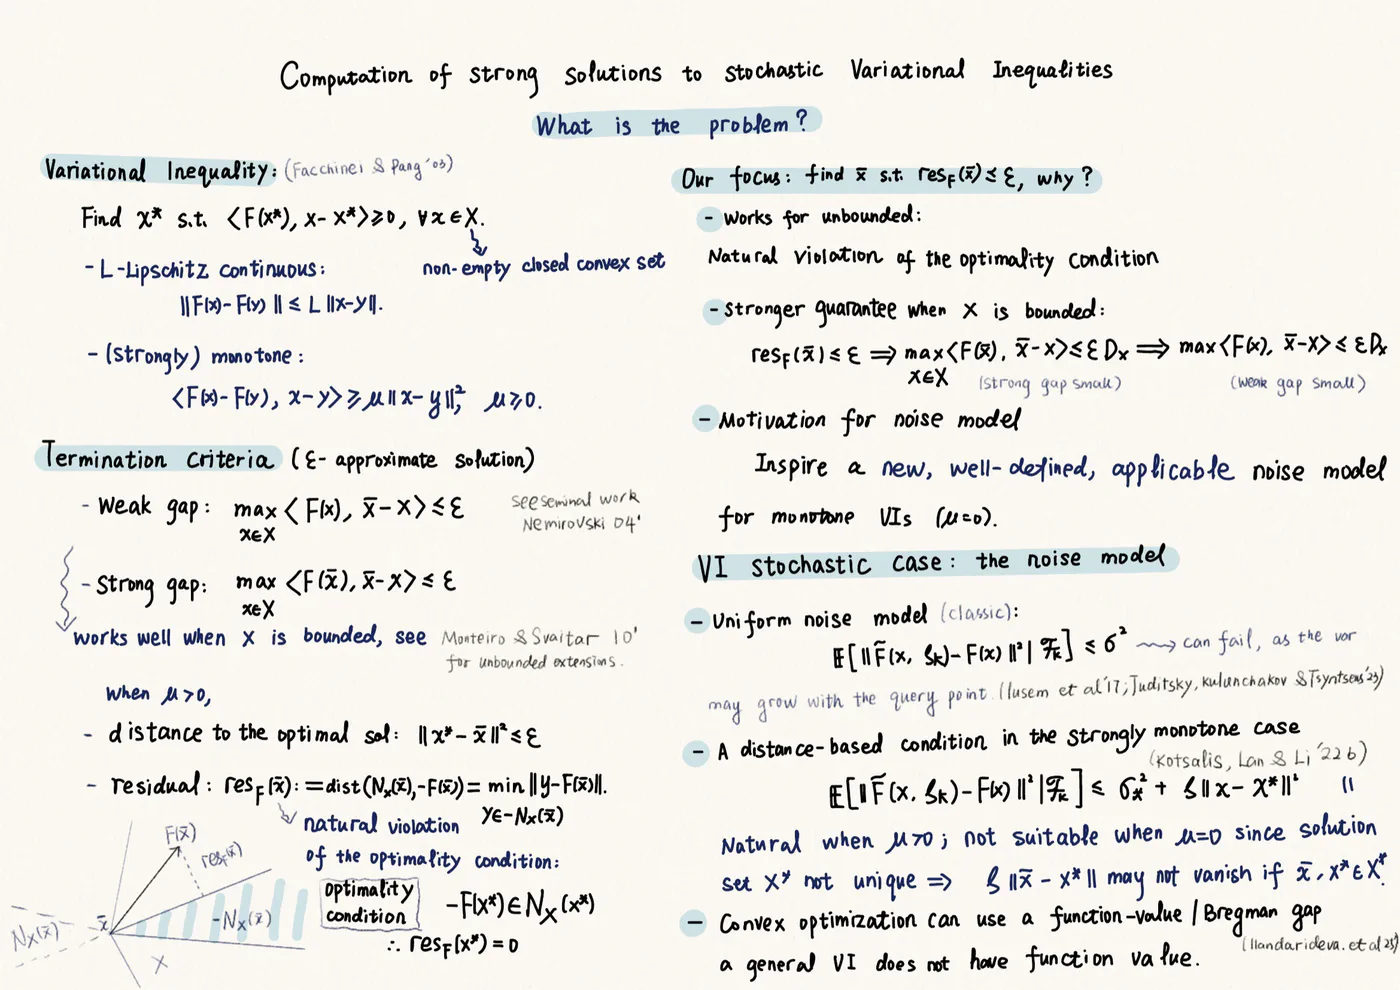 Computation of strong solutions to stochastic Variational Inequalities
What is the problem?
Variational Inequality: (Facchinei & Pang '03)
Find x* s.t. ⟨F(x*), x-x*⟩≥0, ∀x∈X.
non-empty closed convex set
- L-Lipschitz continuous:
||F(x)-F(y)|| ≤ L ||x-y||.
- (strongly) monotone:
⟨F(x)-F(y), x-y⟩≥μ||x-y||², μ≥0.
Termination criteria (ε-approximate solution)
- Weak gap: max ⟨F(x), x̄-x⟩≤ε
x∈X
see seminal work
Nemirovski 04'
- Strong gap: max ⟨F(x̄), x̄-x⟩≤ε
x∈X
works well when X is bounded, see Monteiro & Svaitar 10'
for unbounded extensions.
When μ>0,
- distance to the optimal sol: ||x*-x̄||²≤ε
- residual: res_F(x̄):=dist(N_X(x̄),-F(x̄))= min||y-F(x̄)||.
y∈-N_X(x̄)
natural violation
of the optimality condition:
optimality
condition
-F(x*)∈N_X(x*)
∴ res_F(x*)=0
F(x̄)
res_F(x̄)
-N_X(x̄)
N_X(x̄)
x̄
X
Our focus: find x̄ s.t. res_F(x̄)≤ε, why?
- Works for unbounded:
Natural violation of the optimality condition
- Stronger guarantee when X is bounded:
res_F(x̄)≤ε ⟹ max⟨F(x̄), x̄-x⟩≤εD_X ⟹ max⟨F(x), x̄-x⟩≤εD_X
x∈X (strong gap small) (weak gap small)
- Motivation for noise model
Inspire a new, well-defined, applicable noise model
for monotone VIs (μ=0).
VI stochastic case: the noise model
- Uniform noise model (classic):
E[||F̃(x, ξ_k)-F(x)||²|F_k] ≤ σ² can fail, as the var
may grow with the query point. (Iusem et al'17; Juditsky, Kulunchakov & Tsyntseus'23)
- A distance-based condition in the strongly monotone case
(Kotsalis, Lan & Li '22b)
E[||F̃(x, ξ_k)-F(x)||²|F_k] ≤ σ_*² + ς||x-x*||²
Natural when μ>0; not suitable when μ=0 since solution
set X* not unique ⟹ ς||x̄-x*|| may not vanish if x̄, x*∈X*.
- Convex optimization can use a function-value / Bregman gap
(Ilandarideva. et al 23')
a general VI does not have function value.